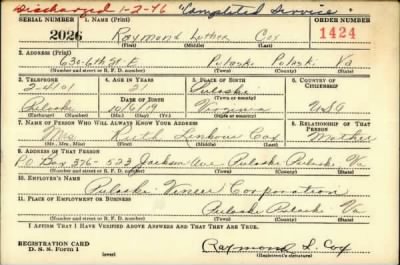 Discharged 1-2-46 "Completed Service"
SERIAL NUMBER 1. NAME (Print) ORDER NUMBER
2026 Raymond Luther Cox 1424
(First) (Middle) (Last)
2. ADDRESS (Print)
630-6th St E Pulaski Pulaski Va
(Number and street or R. F. D. number) (Town) (County) (State)
3. TELEPHONE 4. AGE IN YEARS 5. PLACE OF BIRTH 6. COUNTRY OF CITIZENSHIP
2-4101 21 Pulaski
DATE OF BIRTH (Town or county)
Pulaski Virginia USA
(Exchange) (Number) (Mo.) (Day) (Yr.) (State or country)
7. NAME OF PERSON WHO WILL ALWAYS KNOW YOUR ADDRESS 8. RELATIONSHIP OF THAT PERSON
Mrs Ruth Linkous Cox Mother
(Mr., Mrs., Miss) (First) (Middle) (Last)
9. ADDRESS OF THAT PERSON
PO Box 376-523 Jackson Ave Pulaski Pulaski Va
(Number and street or R. F. D. number) (Town) (County) (State)
10. EMPLOYER'S NAME
Pulaski Veneer Corporation
11. PLACE OF EMPLOYMENT OR BUSINESS
Pulaski Pulaski Va
(Number and street or R. F. D. number) (Town) (County) (State)
I AFFIRM THAT I HAVE VERIFIED ABOVE ANSWERS AND THAT THEY ARE TRUE.
REGISTRATION CARD
D. S. S. Form 1 (over) Raymond L. Cox
(Registrant's signature)